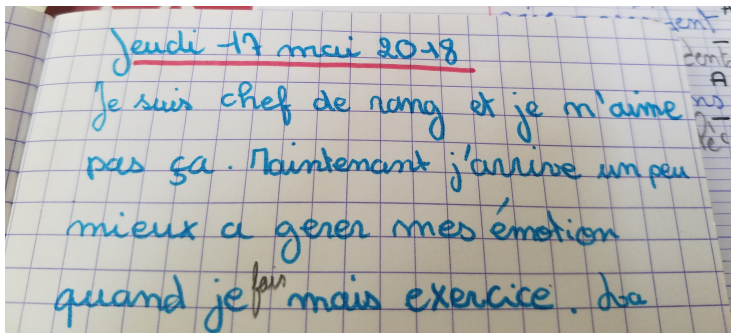 Jeudi 17 mai 2018
Je suis chef de rang et je n'aime
pas ça. Maintenant j'arrive un peu
mieux a gerer mes émotion
quand je fais mais exercice. La